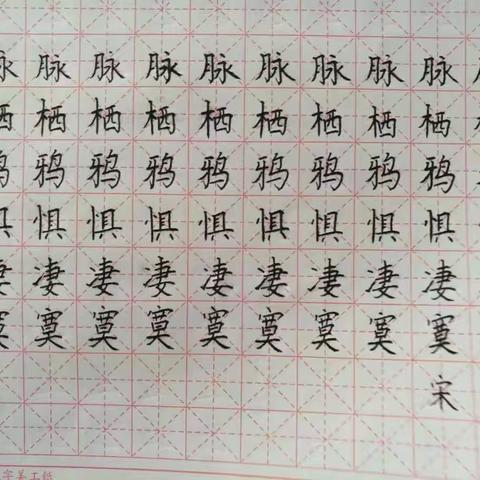 脉脉脉脉脉脉脉脉
栖栖栖栖栖栖栖栖
鸦鸦鸦鸦鸦鸦鸦鸦
惧惧惧惧惧惧惧惧
凄凄凄凄凄凄凄凄
寞寞寞寞寞寞寞寞
宋